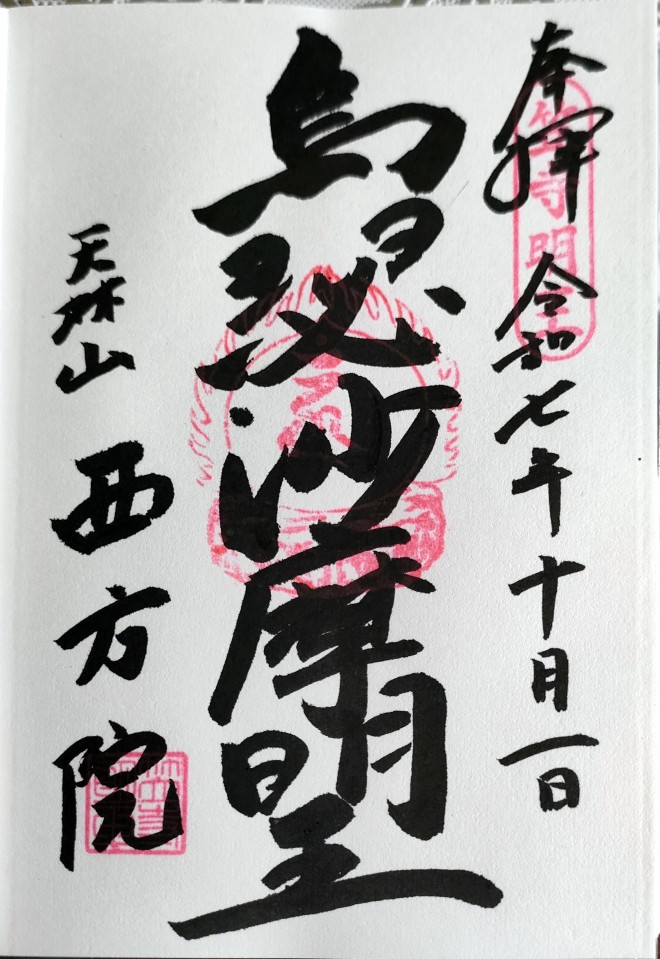 奉拝 令和七年十月一日
笠寺明王
烏瑟沙摩明王
天林山 西方院